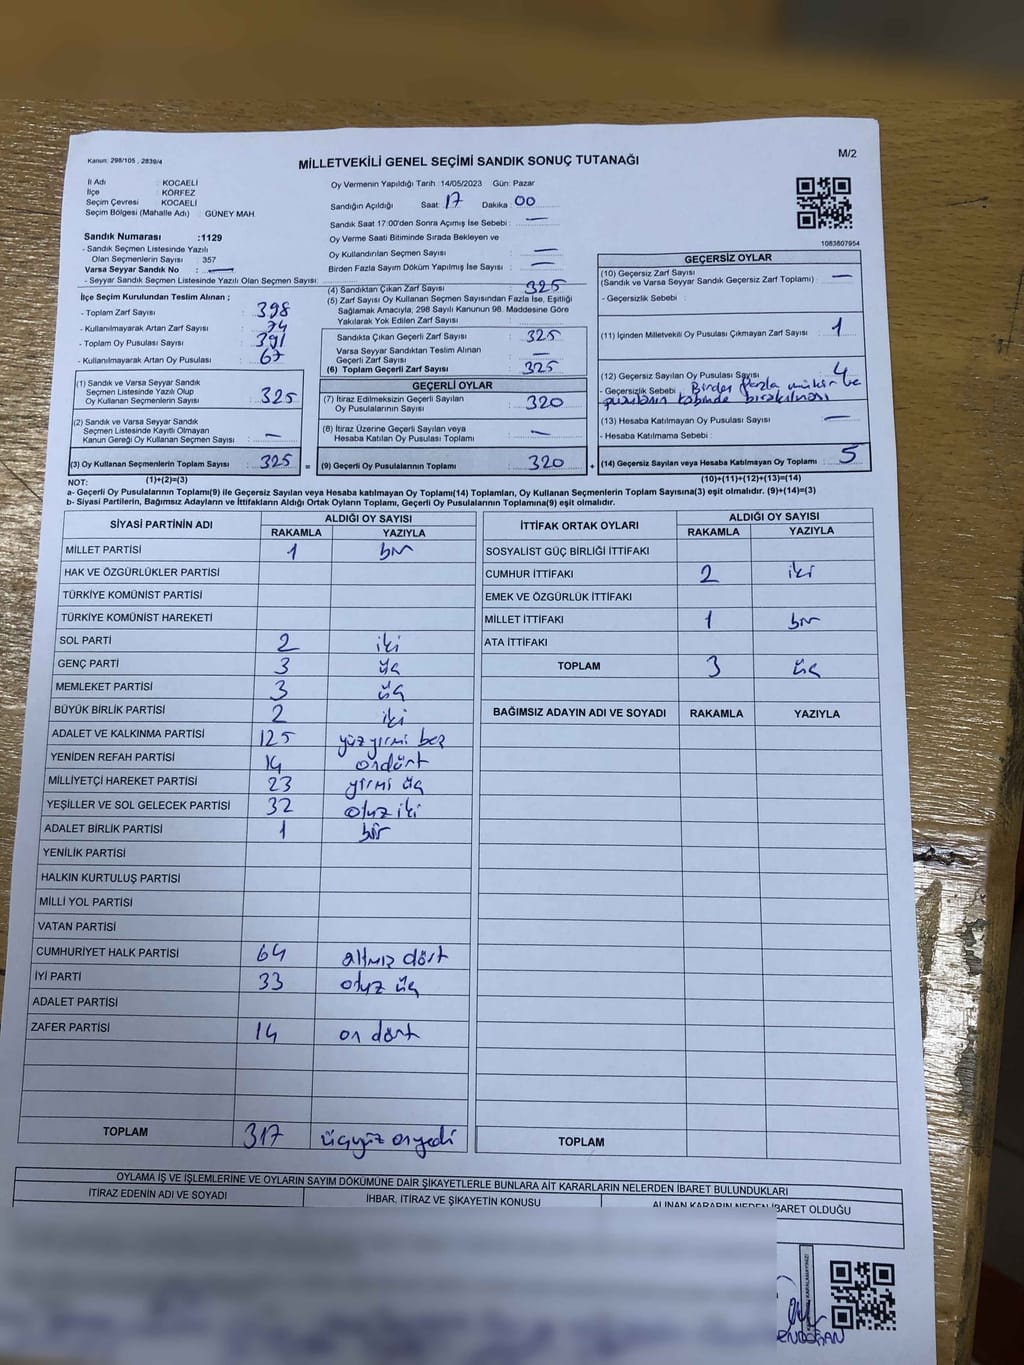 Kanun: 298/105 , 2839/4
MİLLETVEKİLİ GENEL SEÇİMİ SANDIK SONUÇ TUTANAĞI
M/2
İl Adı : KOCAELİ
İlçe : KÖRFEZ
Seçim Çevresi : KOCAELİ
Seçim Bölgesi (Mahalle Adı) : GÜNEY MAH.
Oy Vermenin Yapıldığı Tarih :14/05/2023 Gün: Pazar
Sandığın Açıldığı Saat: 17 Dakika: 00
Sandık Saat 17:00'den Sonra Açımış İse Sebebi : —
Oy Verme Saati Bitiminde Sırada Bekleyen ve
Oy Kullandırılan Seçmen Sayısı : —
Birden Fazla Sayım Döküm Yapılmış İse Sayısı : —
1083607954
Sandık Numarası :1129
- Sandık Seçmen Listesinde Yazılı
Olan Seçmenlerin Sayısı : 357
Varsa Seyyar Sandık No : —
- Seyyar Sandık Seçmen Listesinde Yazılı Olan Seçmen Sayısı:
İlçe Seçim Kurulundan Teslim Alınan ;
- Toplam Zarf Sayısı : 398
- Kullanılmayarak Artan Zarf Sayısı : 74
- Toplam Oy Pusulası Sayısı : 391
- Kullanılmayarak Artan Oy Pusulası : 67
(1) Sandık ve Varsa Seyyar Sandık
Seçmen Listesinde Yazılı Olup
Oy Kullanan Seçmenlerin Sayısı : 325
(2) Sandık ve Varsa Seyyar Sandık
Seçmen Listesinde Kayıtlı Olmayan
Kanun Gereği Oy Kullanan Seçmen Sayısı : —
(3) Oy Kullanan Seçmenlerin Toplam Sayısı : 325
(4) Sandıktan Çıkan Zarf Sayısı : 325
(5) Zarf Sayısı Oy Kullanan Seçmen Sayısından Fazla İse, Eşitliği
Sağlamak Amacıyla, 298 Sayılı Kanunun 98. Maddesine Göre
Yakılarak Yok Edilen Zarf Sayısı :
Sandıkta Çıkan Geçerli Zarf Sayısı : 325
Varsa Seyyar Sandıktan Teslim Alınan
Geçerli Zarf Sayısı : —
(6) Toplam Geçerli Zarf Sayısı : 325
GEÇERLİ OYLAR
(7) İtiraz Edilmeksizin Geçerli Sayılan
Oy Pusulalarının Sayısı : 320
(8) İtiraz Üzerine Geçerli Sayılan veya
Hesaba Katılan Oy Pusulası Toplamı : —
= (9) Geçerli Oy Pusulalarının Toplamı : 320
GEÇERSİZ OYLAR
(10) Geçersiz Zarf Sayısı
(Sandık ve Varsa Seyyar Sandık Geçersiz Zarf Toplamı) : —
- Geçersizlik Sebebi :
(11) İçinden Milletvekili Oy Pusulası Çıkmayan Zarf Sayısı : 1
(12) Geçersiz Sayılan Oy Pusulası Sayısı : 4
- Geçersizlik Sebebi : Birden fazla mühür ve
pusulanın kabinde bırakılması
(13) Hesaba Katılmayan Oy Pusulası Sayısı : —
- Hesaba Katılmama Sebebi :
+ (14) Geçersiz Sayılan veya Hesaba Katılmayan Oy Toplamı : 5
NOT: (1)+(2)=(3) (10)+(11)+(12)+(13)=(14)
a- Geçerli Oy Pusulalarının Toplamı(9) ile Geçersiz Sayılan veya Hesaba katılmayan Oy Toplamı(14) Toplamları, Oy Kullanan Seçmenlerin Toplam Sayısına(3) eşit olmalıdır. (9)+(14)=(3)
b- Siyasi Partilerin, Bağımsız Adayların ve İttifakların Aldığı Ortak Oyların Toplamı, Geçerli Oy Pusulalarının Toplamına(9) eşit olmalıdır.
SİYASİ PARTİNİN ADI ALDIĞI OY SAYISI
RAKAMLA YAZIYLA
MİLLET PARTİSİ 1 bir
HAK VE ÖZGÜRLÜKLER PARTİSİ
TÜRKİYE KOMÜNİST PARTİSİ
TÜRKİYE KOMÜNİST HAREKETİ
SOL PARTİ 2 iki
GENÇ PARTİ 3 üç
MEMLEKET PARTİSİ 3 üç
BÜYÜK BİRLİK PARTİSİ 2 iki
ADALET VE KALKINMA PARTİSİ 125 yüz yirmi beş
YENİDEN REFAH PARTİSİ 14 ondört
MİLLİYETÇİ HAREKET PARTİSİ 23 yirmi üç
YEŞİLLER VE SOL GELECEK PARTİSİ 32 otuz iki
ADALET BİRLİK PARTİSİ 1 bir
YENİLİK PARTİSİ
HALKIN KURTULUŞ PARTİSİ
MİLLİ YOL PARTİSİ
VATAN PARTİSİ
CUMHURİYET HALK PARTİSİ 64 altmış dört
İYİ PARTİ 33 otuz üç
ADALET PARTİSİ
ZAFER PARTİSİ 14 on dört
TOPLAM 317 üçyüz onyedi
İTTİFAK ORTAK OYLARI ALDIĞI OY SAYISI
RAKAMLA YAZIYLA
SOSYALİST GÜÇ BİRLİĞİ İTTİFAKI
CUMHUR İTTİFAKI 2 iki
EMEK VE ÖZGÜRLÜK İTTİFAKI
MİLLET İTTİFAKI 1 bir
ATA İTTİFAKI
TOPLAM 3 üç
BAĞIMSIZ ADAYIN ADI VE SOYADI RAKAMLA YAZIYLA
TOPLAM
OYLAMA İŞ VE İŞLEMLERİNE VE OYLARIN SAYIM DÖKÜMÜNE DAİR ŞİKAYETLERLE BUNLARA AİT KARARLARIN NELERDEN İBARET BULUNDUKLARI
İTİRAZ EDENİN ADI VE SOYADI İHBAR, İTİRAZ VE ŞİKAYETİN KONUSU ALINAN KARARIN NEDEN İBARET OLDUĞU